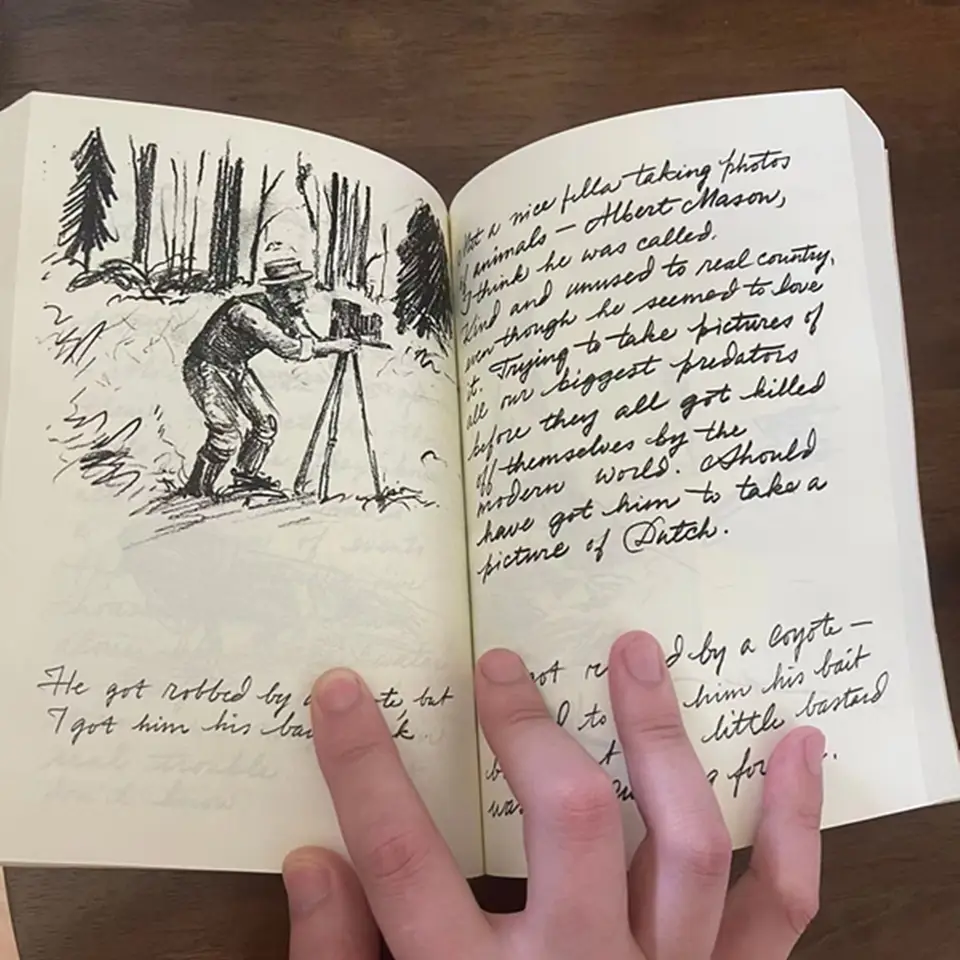 He got robbed by a but
I got him his
Met a nice fella taking photos
of animals – Albert Mason,
I think he was called.
Kind and unused to real country,
even though he seemed to love
it. Trying to take pictures of
all our biggest predators
before they all got killed
off themselves by the
modern world. Should
have got him to take a
picture of Dutch.
got by a coyote –
him his bait
little bastard